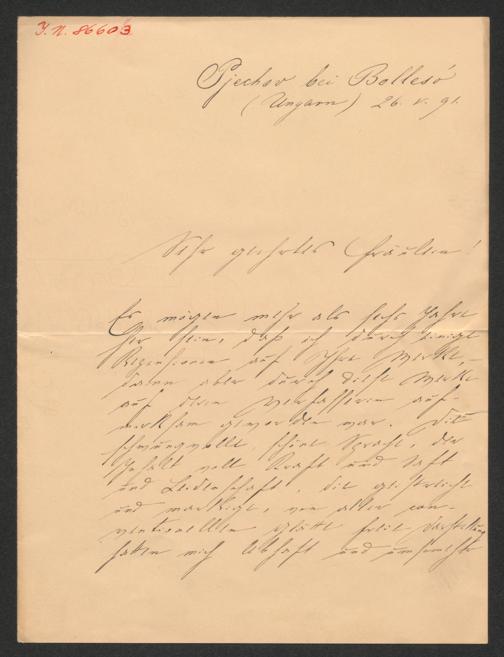 I. N. 86603
Pjechov bei Bollesó
(Ungarn) 26. V. 91.
Sehr geehrtes Fräulein!
Es mögen mehr als sechs Jahre
her sein, daß ich durch einige
Rezensionen auf Ihre Werke,
dann aber durch diese Werke
auf deren Verfasserin auf-
merksam geworden war. Die
schwungvolle, schöne Sprache, der
Inhalt voll Kraft und Saft
und Leidenschaft, die geistreiche
und markige, von aller con-
ventionellen Glätte freie Darstellung
hatten mich lebhaft und